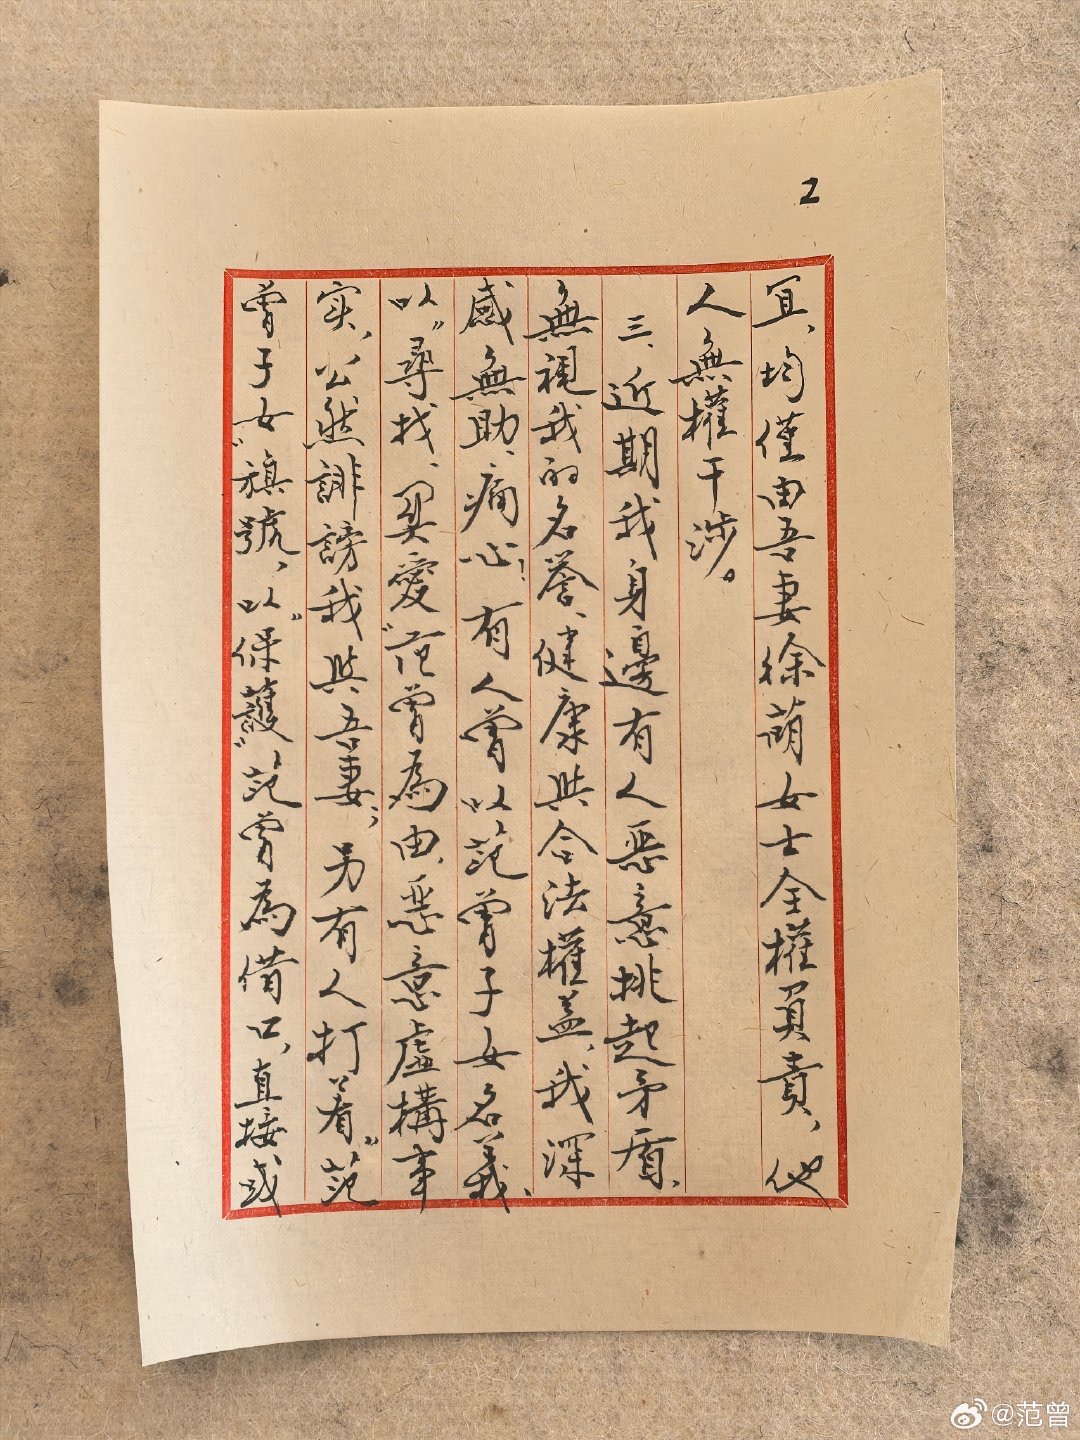 2
宜、均僅由吾妻徐萌女士全權負責，他
人無權干涉。
三、近期我身邊有人惡意挑起矛盾、
無視我的名譽、健康與合法權益、我深
感無助、痛心！有人曾以范曾子女名義、
以“尋找、關愛”范曾為由、惡意虛構事
实，公然誹謗我與吾妻；另有人打着“范
曾子女”旗號，以“保護”范曾為借口，直接或
@范曾